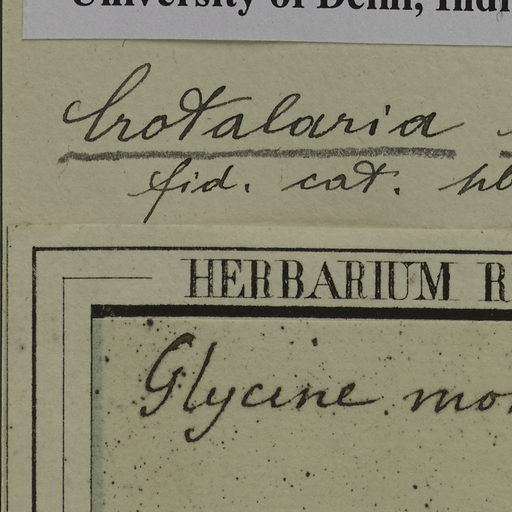 University of Delhi, Indi
Crotalaria
fid. cat.
HERBARIUM R
Glycine mo